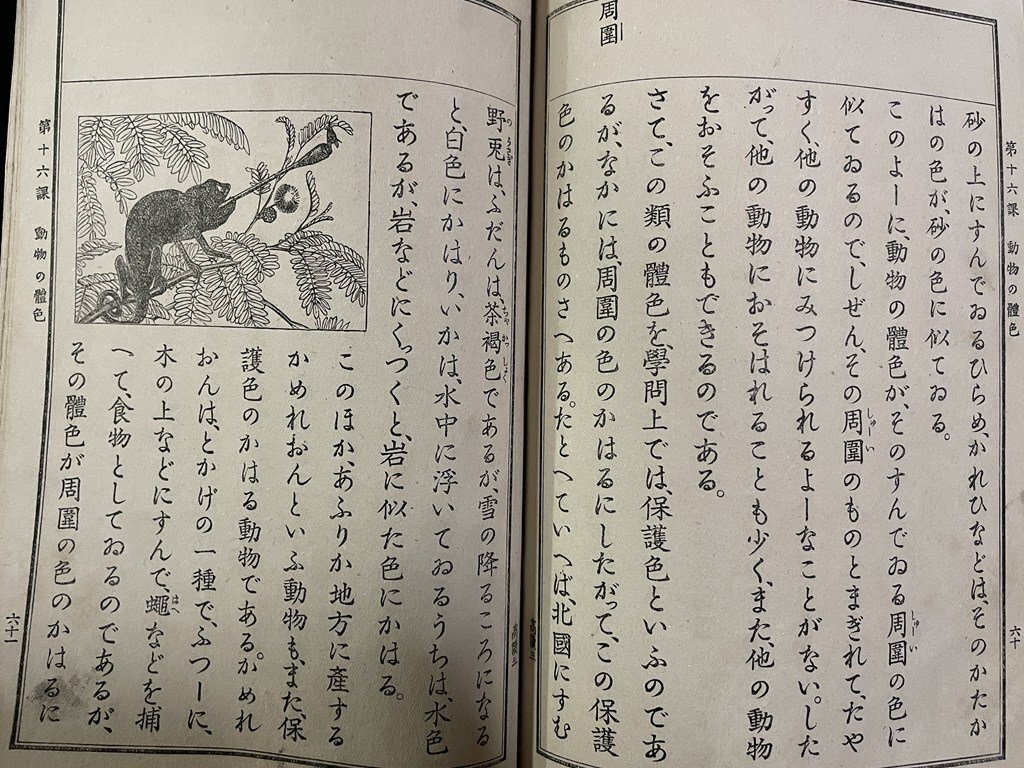 周圍
第十六課 動物の體色
六十
砂の上にすんでゐるひらめ、かれひなどは、そのかたか
はの色が、砂の色に似てゐる。
このよーに、動物の體色が、そのすんでゐる周圍の色に
しゅーい
似てゐるので、しぜん、その周圍のものとまぎれて、たや
しゅーい
すく、他の動物にみつけられるよーなことがない。した
がって、他の動物におそはれることも少く、また、他の動物
をおそふこともできるのである。
さて、この類の體色を、學問上では、保護色といふのであ
るが、なかには、周圍の色のかはるにしたがって、この保護
色のかはるものさへある。たとへていへば、北國にすむ
高慎三
野兎は、ふだんは茶褐色であるが、雪の降るころになる
のうさぎ
ちゃかっしょく
と、白色にかはり、いかは、水中に浮いてゐるうちは、水色
であるが、岩などにくっつくと、岩に似た色にかはる。
このほか、あふりか地方に産する
かめれおんといふ動物も、また、保
護色のかはる動物である。かめれ
おんは、とかげの一種で、ふつーに、
木の上などにすんで、蠅などを捕
はへ
へて、食物としてゐるのであるが、
その體色が周圍の色のかはるに
第十六課 動物の體色
六十一